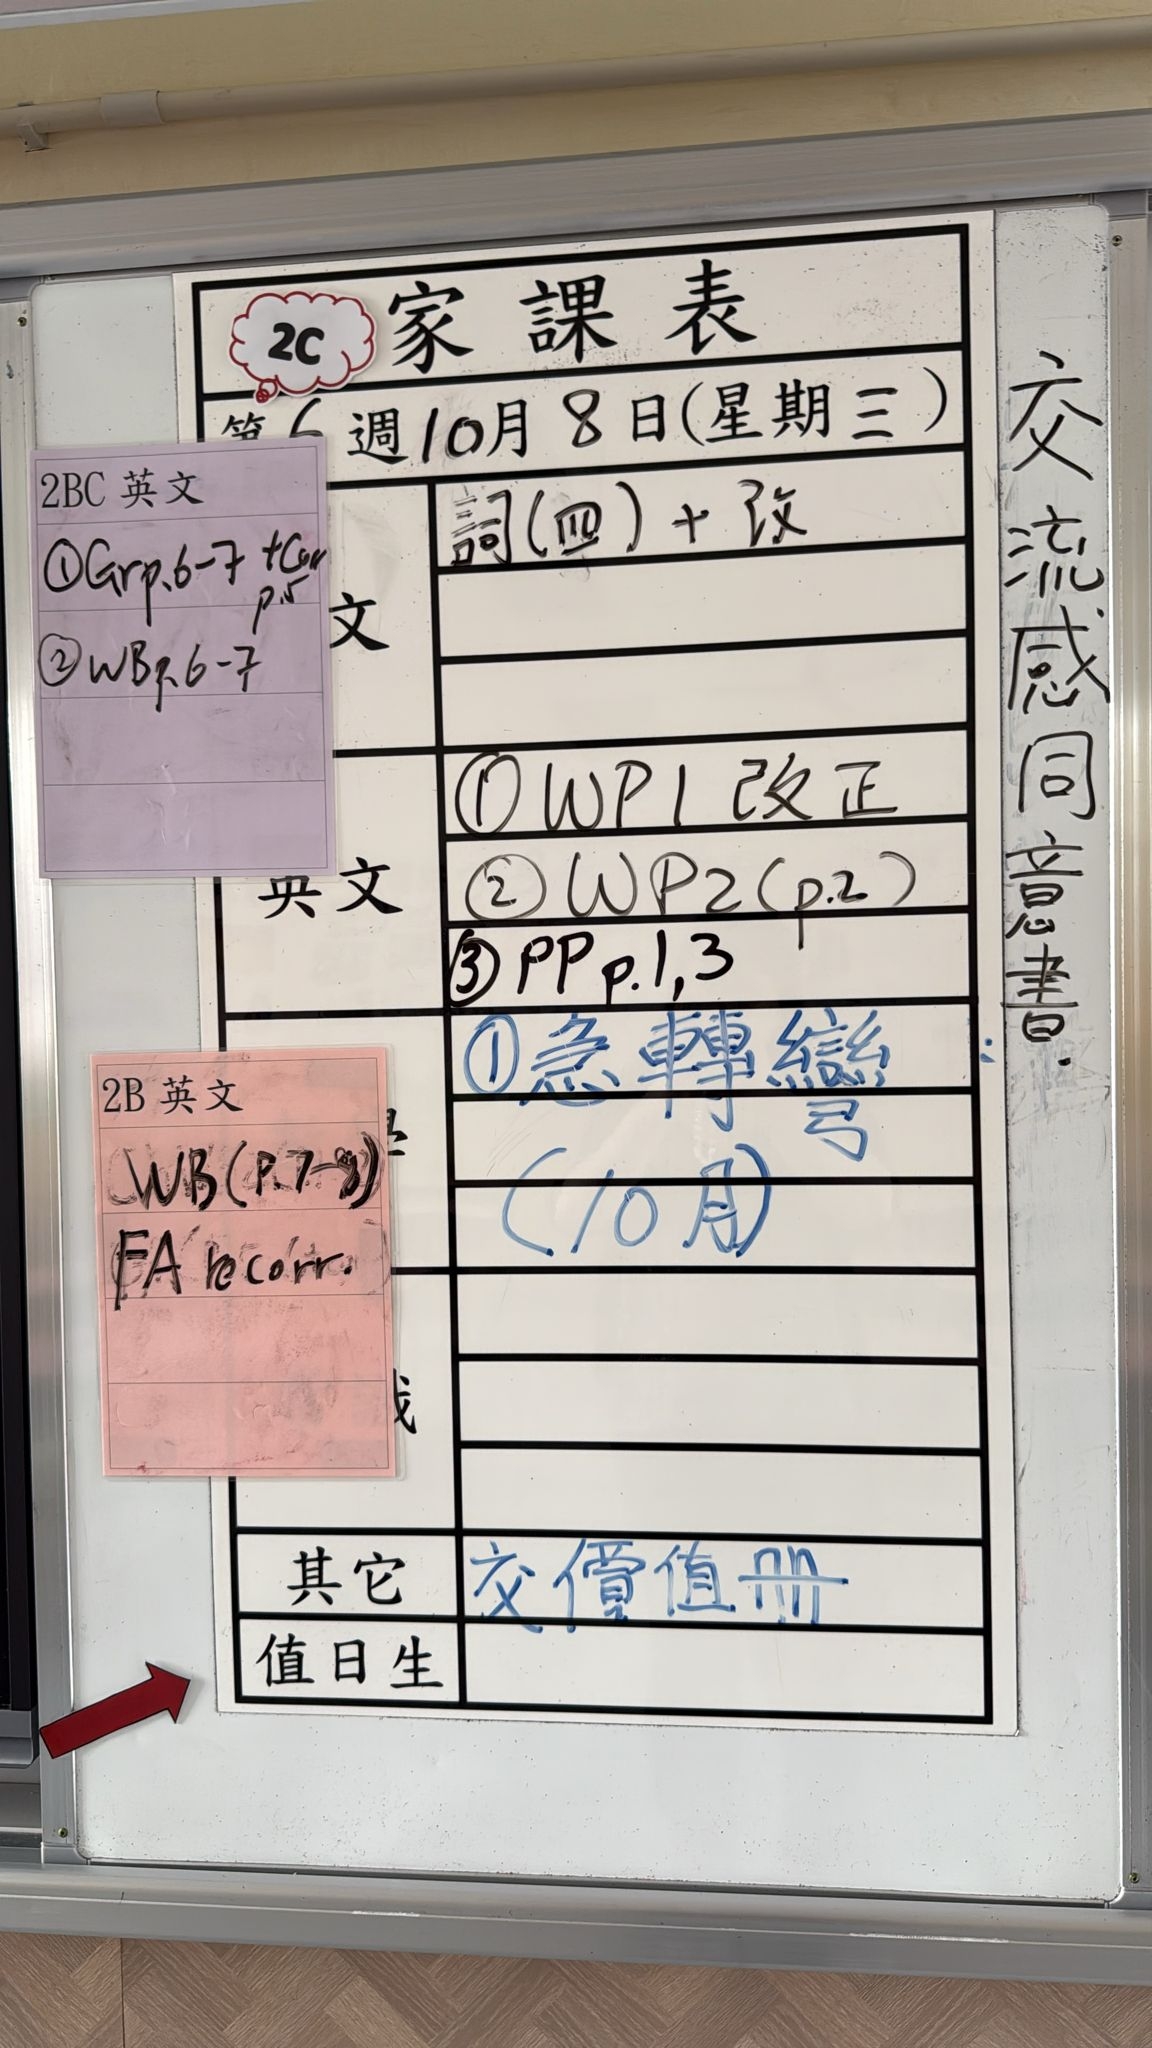 2C 家課表
第6週10月8日(星期三)
2BC 英文
①Gr p.6-7 + Corr p.5
②WB p.6-7
文
詞(四) + 改
英文
①WP1 改正
②WP2 (p.2)
③PP p.1,3
2B 英文
WB (P.7-8)
FA re corr.
①急轉彎
(10月)
其它
交價值冊
值日生
交流感同意書.